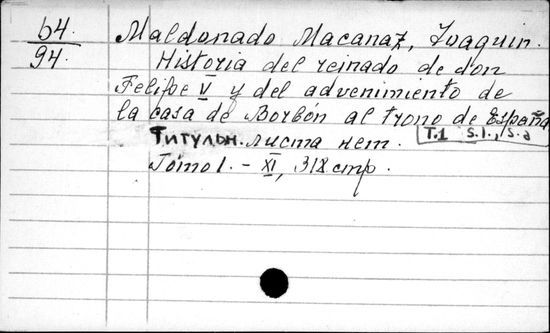 64. Maldonado Macanaz, Joaquin.
94. Historia del reinado de don
Felipe V y del advenimiento de
la casa de Borbón al trono de España
Титульн. листа нет. T.1 S.l., s.a
Tomo 1. - XI, 318 стр.